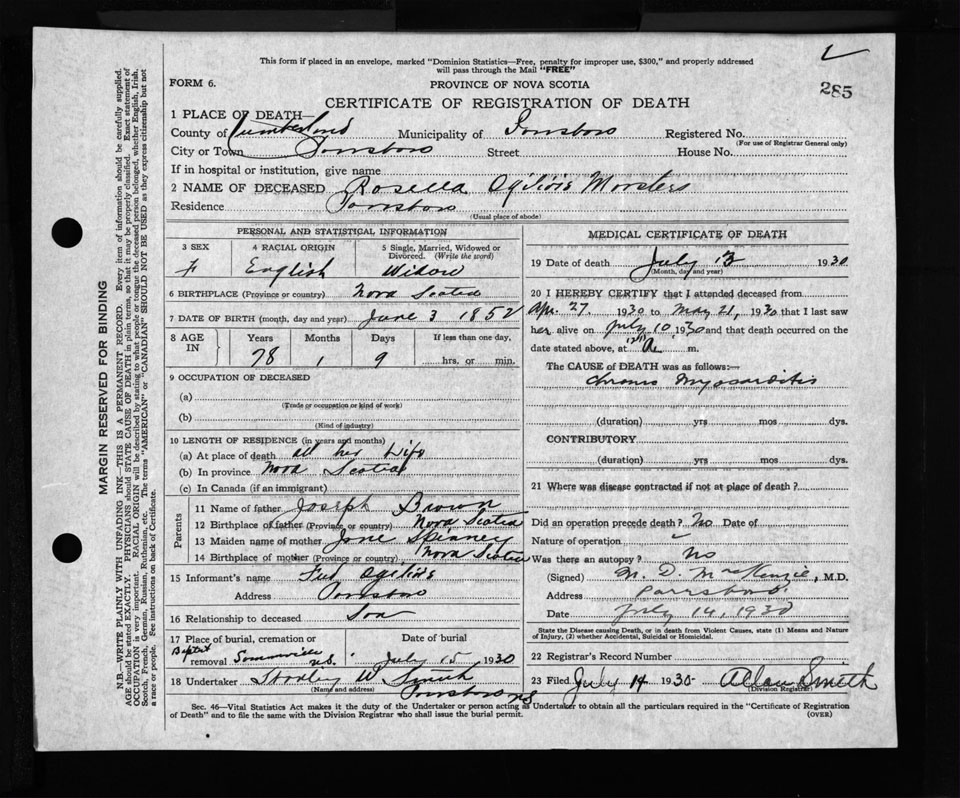 This form if placed in an envelope, marked "Dominion Statistics—Free, penalty for improper use, $300," and properly addressed
will pass through the Mail "FREE"
285
FORM 6.
PROVINCE OF NOVA SCOTIA
CERTIFICATE OF REGISTRATION OF DEATH
1 PLACE OF DEATH—
County of Cumberland Municipality of Parrsboro Registered No.
(For use of Registrar General only)
City or Town Parrsboro Street House No.
If in hospital or institution, give name
2 NAME OF DECEASED Rosella Ogilvie Morsters
Residence Parrsboro
(Usual place of abode)
PERSONAL AND STATISTICAL INFORMATION
3 SEX 4 RACIAL ORIGIN 5 Single, Married, Widowed or Divorced. (Write the word)
F English Widow
6 BIRTHPLACE (Province or country) Nova Scotia
7 DATE OF BIRTH (month, day and year) June 3 1852
8 AGE IN Years Months Days If less than one day,
78 1 9 hrs. or min.
9 OCCUPATION OF DECEASED
(a)
(Trade or occupation or kind of work)
(b)
(Kind of industry)
10 LENGTH OF RESIDENCE (in years and months)
(a) At place of death all her life
(b) In province Nova Scotia
(c) In Canada (if an immigrant)
Parents
11 Name of father Joseph Brown
12 Birthplace of father (Province or country) Nova Scotia
13 Maiden name of mother Jane Spinney
14 Birthplace of mother (Province or country) Nova Scotia
15 Informant's name Fred Ogilvie
Address Parrsboro
16 Relationship to deceased Son
17 Place of burial, cremation or Date of burial
Baptist
removal N.S. July 15 1930
18 Undertaker W Smith
(Name and address) Parrsboro NS
MEDICAL CERTIFICATE OF DEATH
19 Date of death July 13 1930
(Month, day and year)
20 I HEREBY CERTIFY that I attended deceased from
Apr. 27. 1930 to May 21, 1930 that I last saw
her alive on July 10 1930 and that death occurred on
date stated above, at A. m.
The CAUSE of DEATH was as follows:—
Chronic Myocarditis
(duration) yrs mos dys.
CONTRIBUTORY
(duration) yrs mos dys.
21 Where was disease contracted if not at place of death?
Did an operation precede death? No Date of
Nature of operation
Was there an autopsy? No
(Signed) M. D. MacKenzie, M.D.
Address Parrsboro
Date July 14, 1930
State the Disease causing Death, or in death from Violent Causes, state (1) Means and Nature
of Injury, (2) whether Accidental, Suicidal or Homicidal.
22 Registrar's Record Number
23 Filed July 14 1930 Allan Smith
(Division Registrar)
Sec. 46—Vital Statistics Act makes it the duty of the Undertaker or person acting as Undertaker to obtain all the particulars required in the "Certificate of Registration
of Death" and to file the same with the Division Registrar who shall issue the burial permit.
(OVER)
MARGIN RESERVED FOR BINDING
N.B.—WRITE PLAINLY WITH UNFADING INK—THIS IS A PERMANENT RECORD. Every item of information should be carefully supplied.
AGE should be stated EXACTLY. PHYSICIANS should STATE CAUSE OF DEATH in plain terms, so that it may be properly classified. Exact statement of
OCCUPATION is very important. RACIAL ORIGIN will be described by stating to what people or tongue the deceased person belonged, whether English, Irish,
Scotch, French, German, Russian, Ruthenian, etc. The terms "AMERICAN" or "CANADIAN" SHOULD NOT BE USED as they express citizenship but not
a race or people. See instructions on back of Certificate.